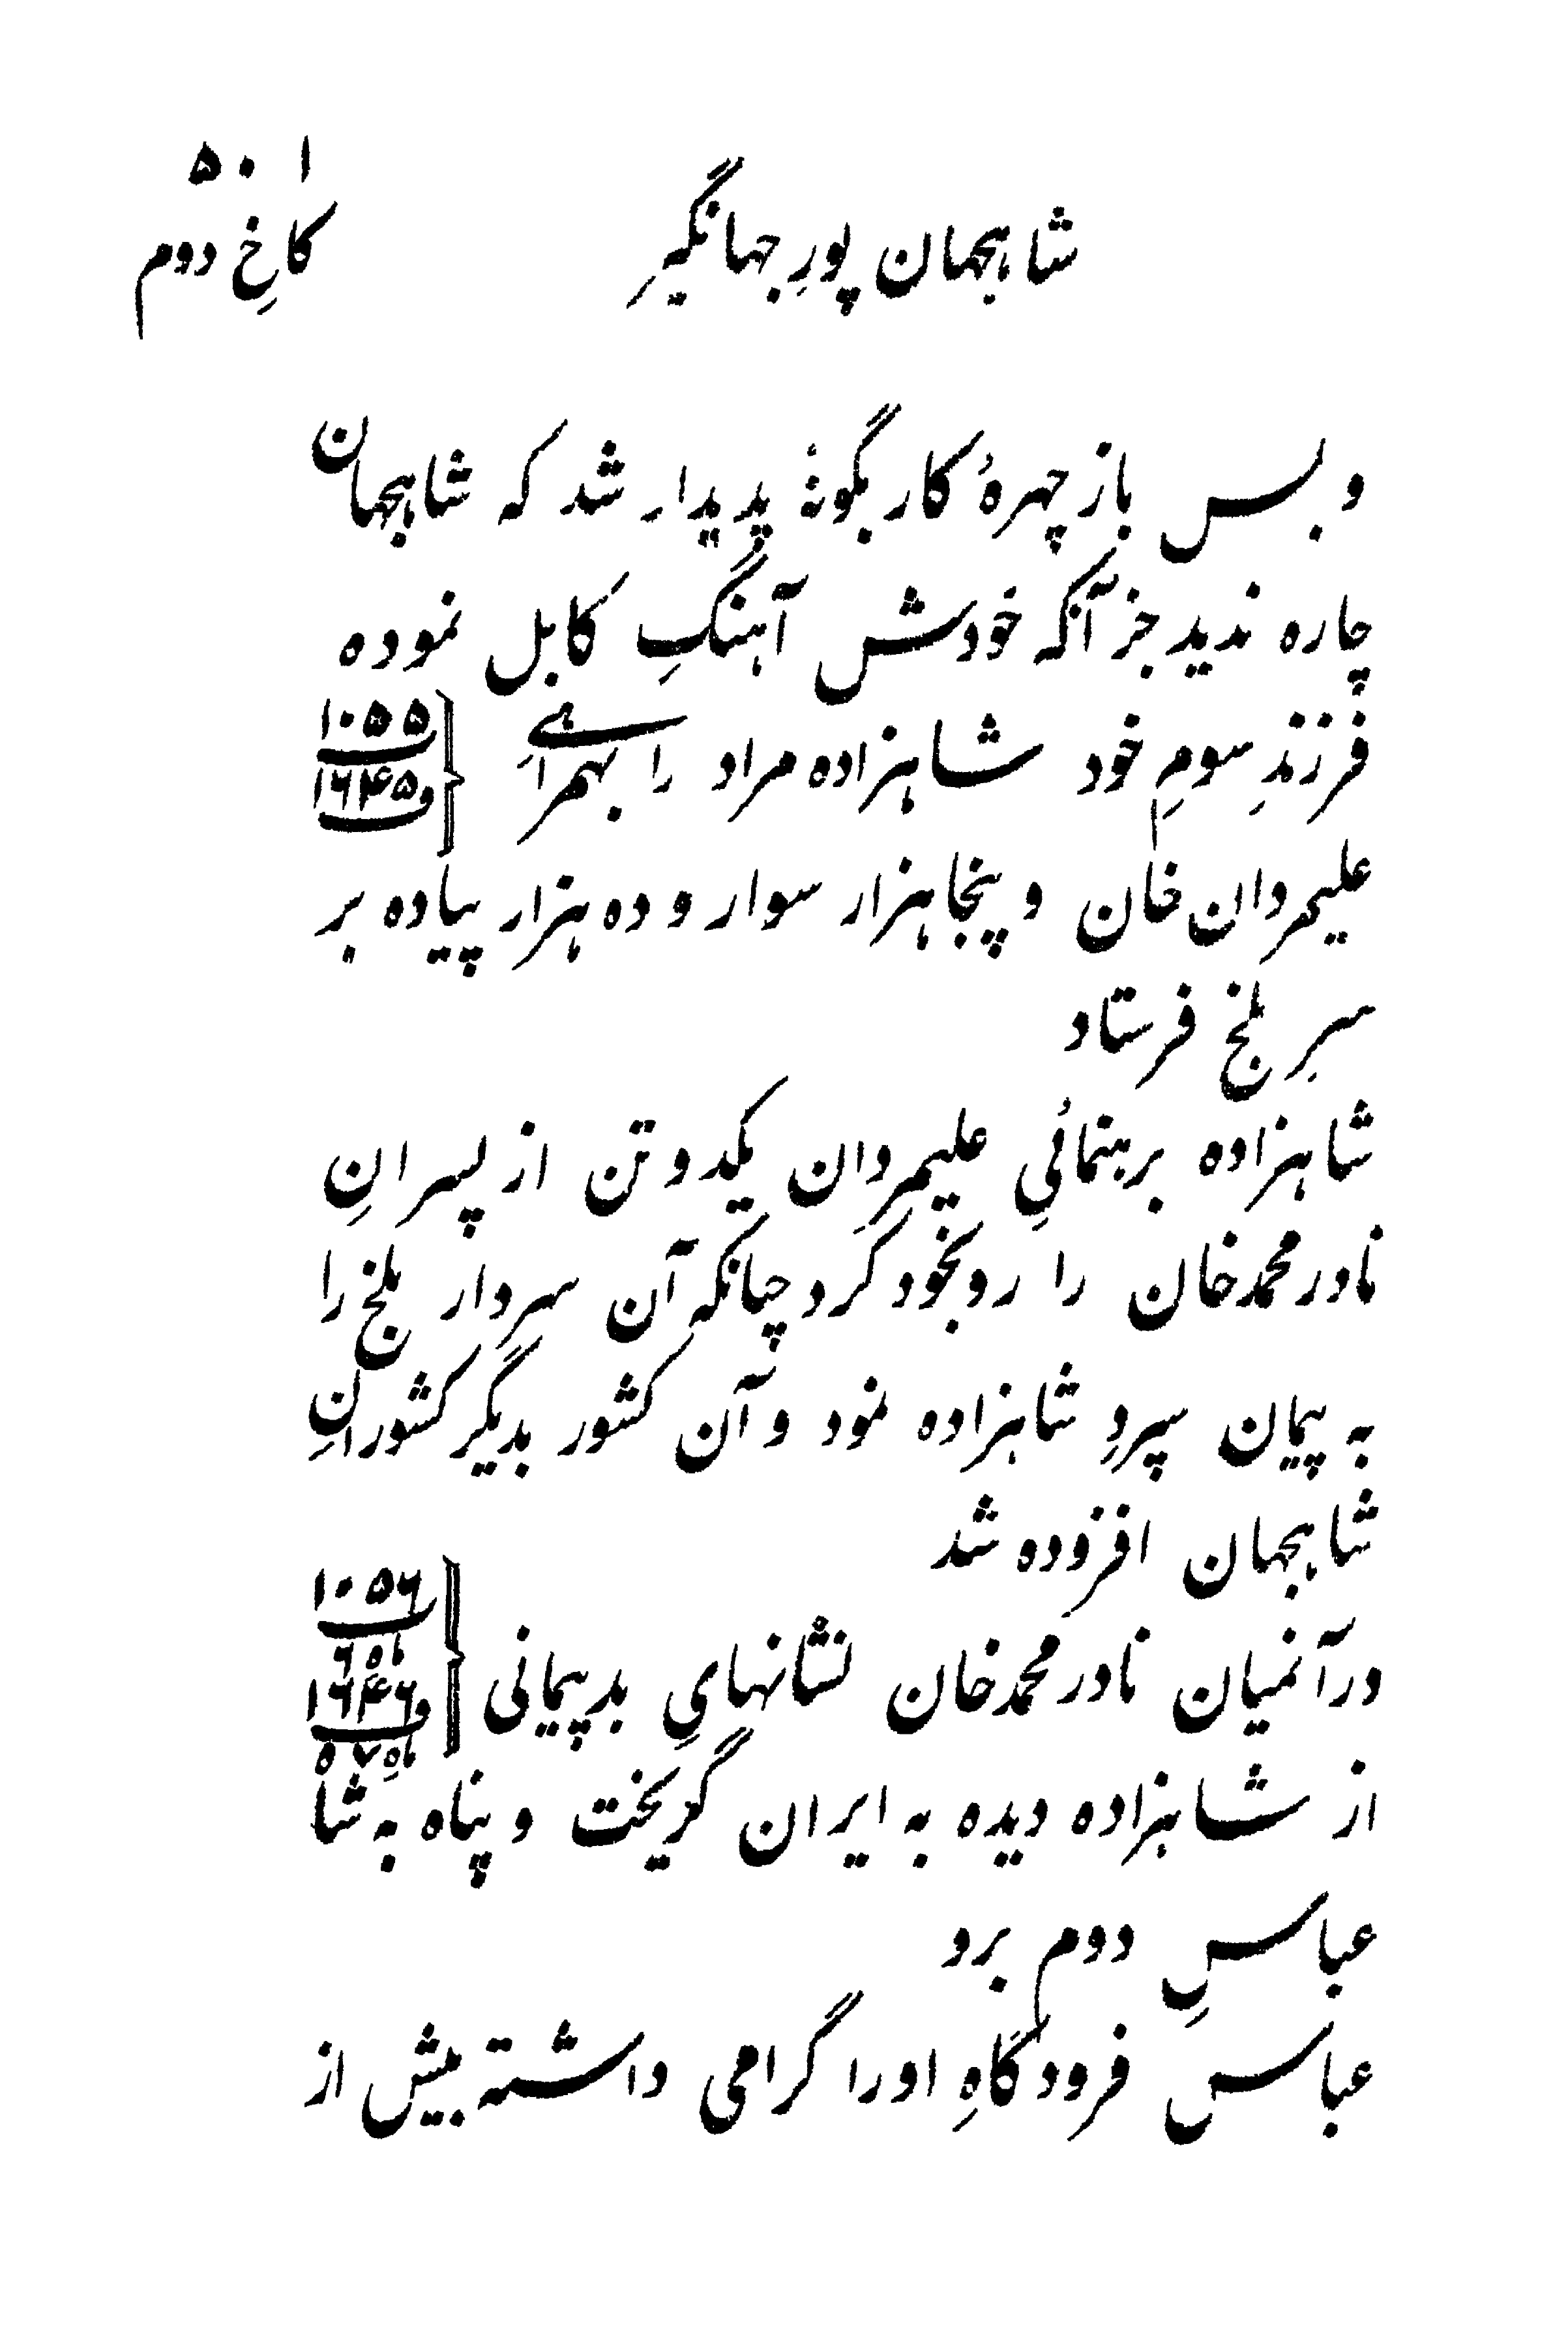 ۵۰۱
شاهجهان پورِ جهانگیرِ
کاخِ دوم
و بس باز چهرهٔ کار بگونهٔ پدیدار شد که شاهجهان
چاره ندید جز آنکه خودش آهنگِ کابل نموده
فرزندِ سومِ خود شاهزاده مراد را بهمراهیِ
۱۰۵۵
و ۱۶۴۵
علیمردان خان و پنجاهزار سوار و ده هزار پیاده بر
سرِ بلخ فرستاد
شاهزاده برهنمائیِ علیمردان یکدو تن از پسرانِ
نادر محمد خان را رو بخود کرد چنانکه آن سردار بلخ را
به پیمان سپردِ شاهزاده نمود و آن کشور بدیگر کشورانِ
شاهجهان افزوده شد
در آنمیان نادر محمد خان نشانهایِ بد پیمانی
۱۰۵۶
ماه ۶
و ۱۶۴۶
ماهِ ۷
از شاهزاده دیده به ایران گریخت و پناه به شا
عباسِ دوم برد
عباس فرودگاهِ او را گرامی داشته بیش از